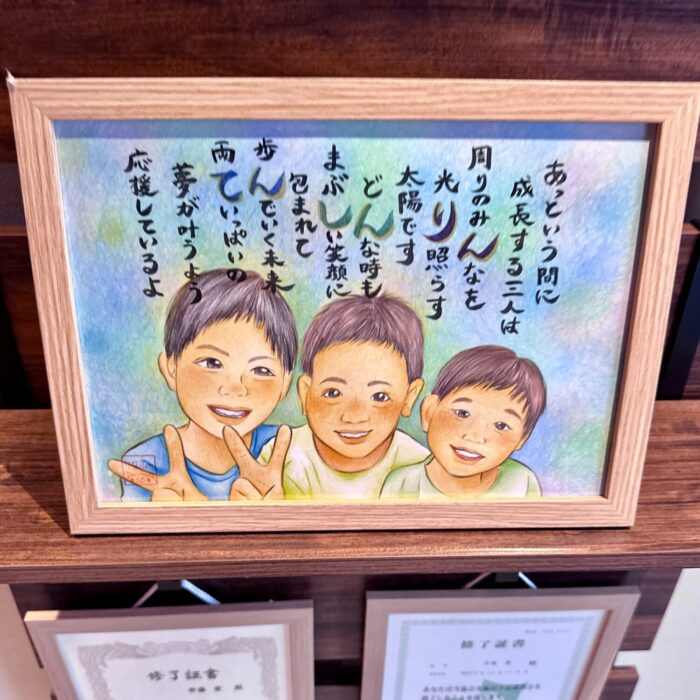 あっという間に
成長する三人は
周りのみんなを
光り照らす
太陽です
どんな時も
まぶしい笑顔に
包まれて
歩んでいく未来
両ていっぱいの
夢が叶うよう
応援しているよ
修了証書